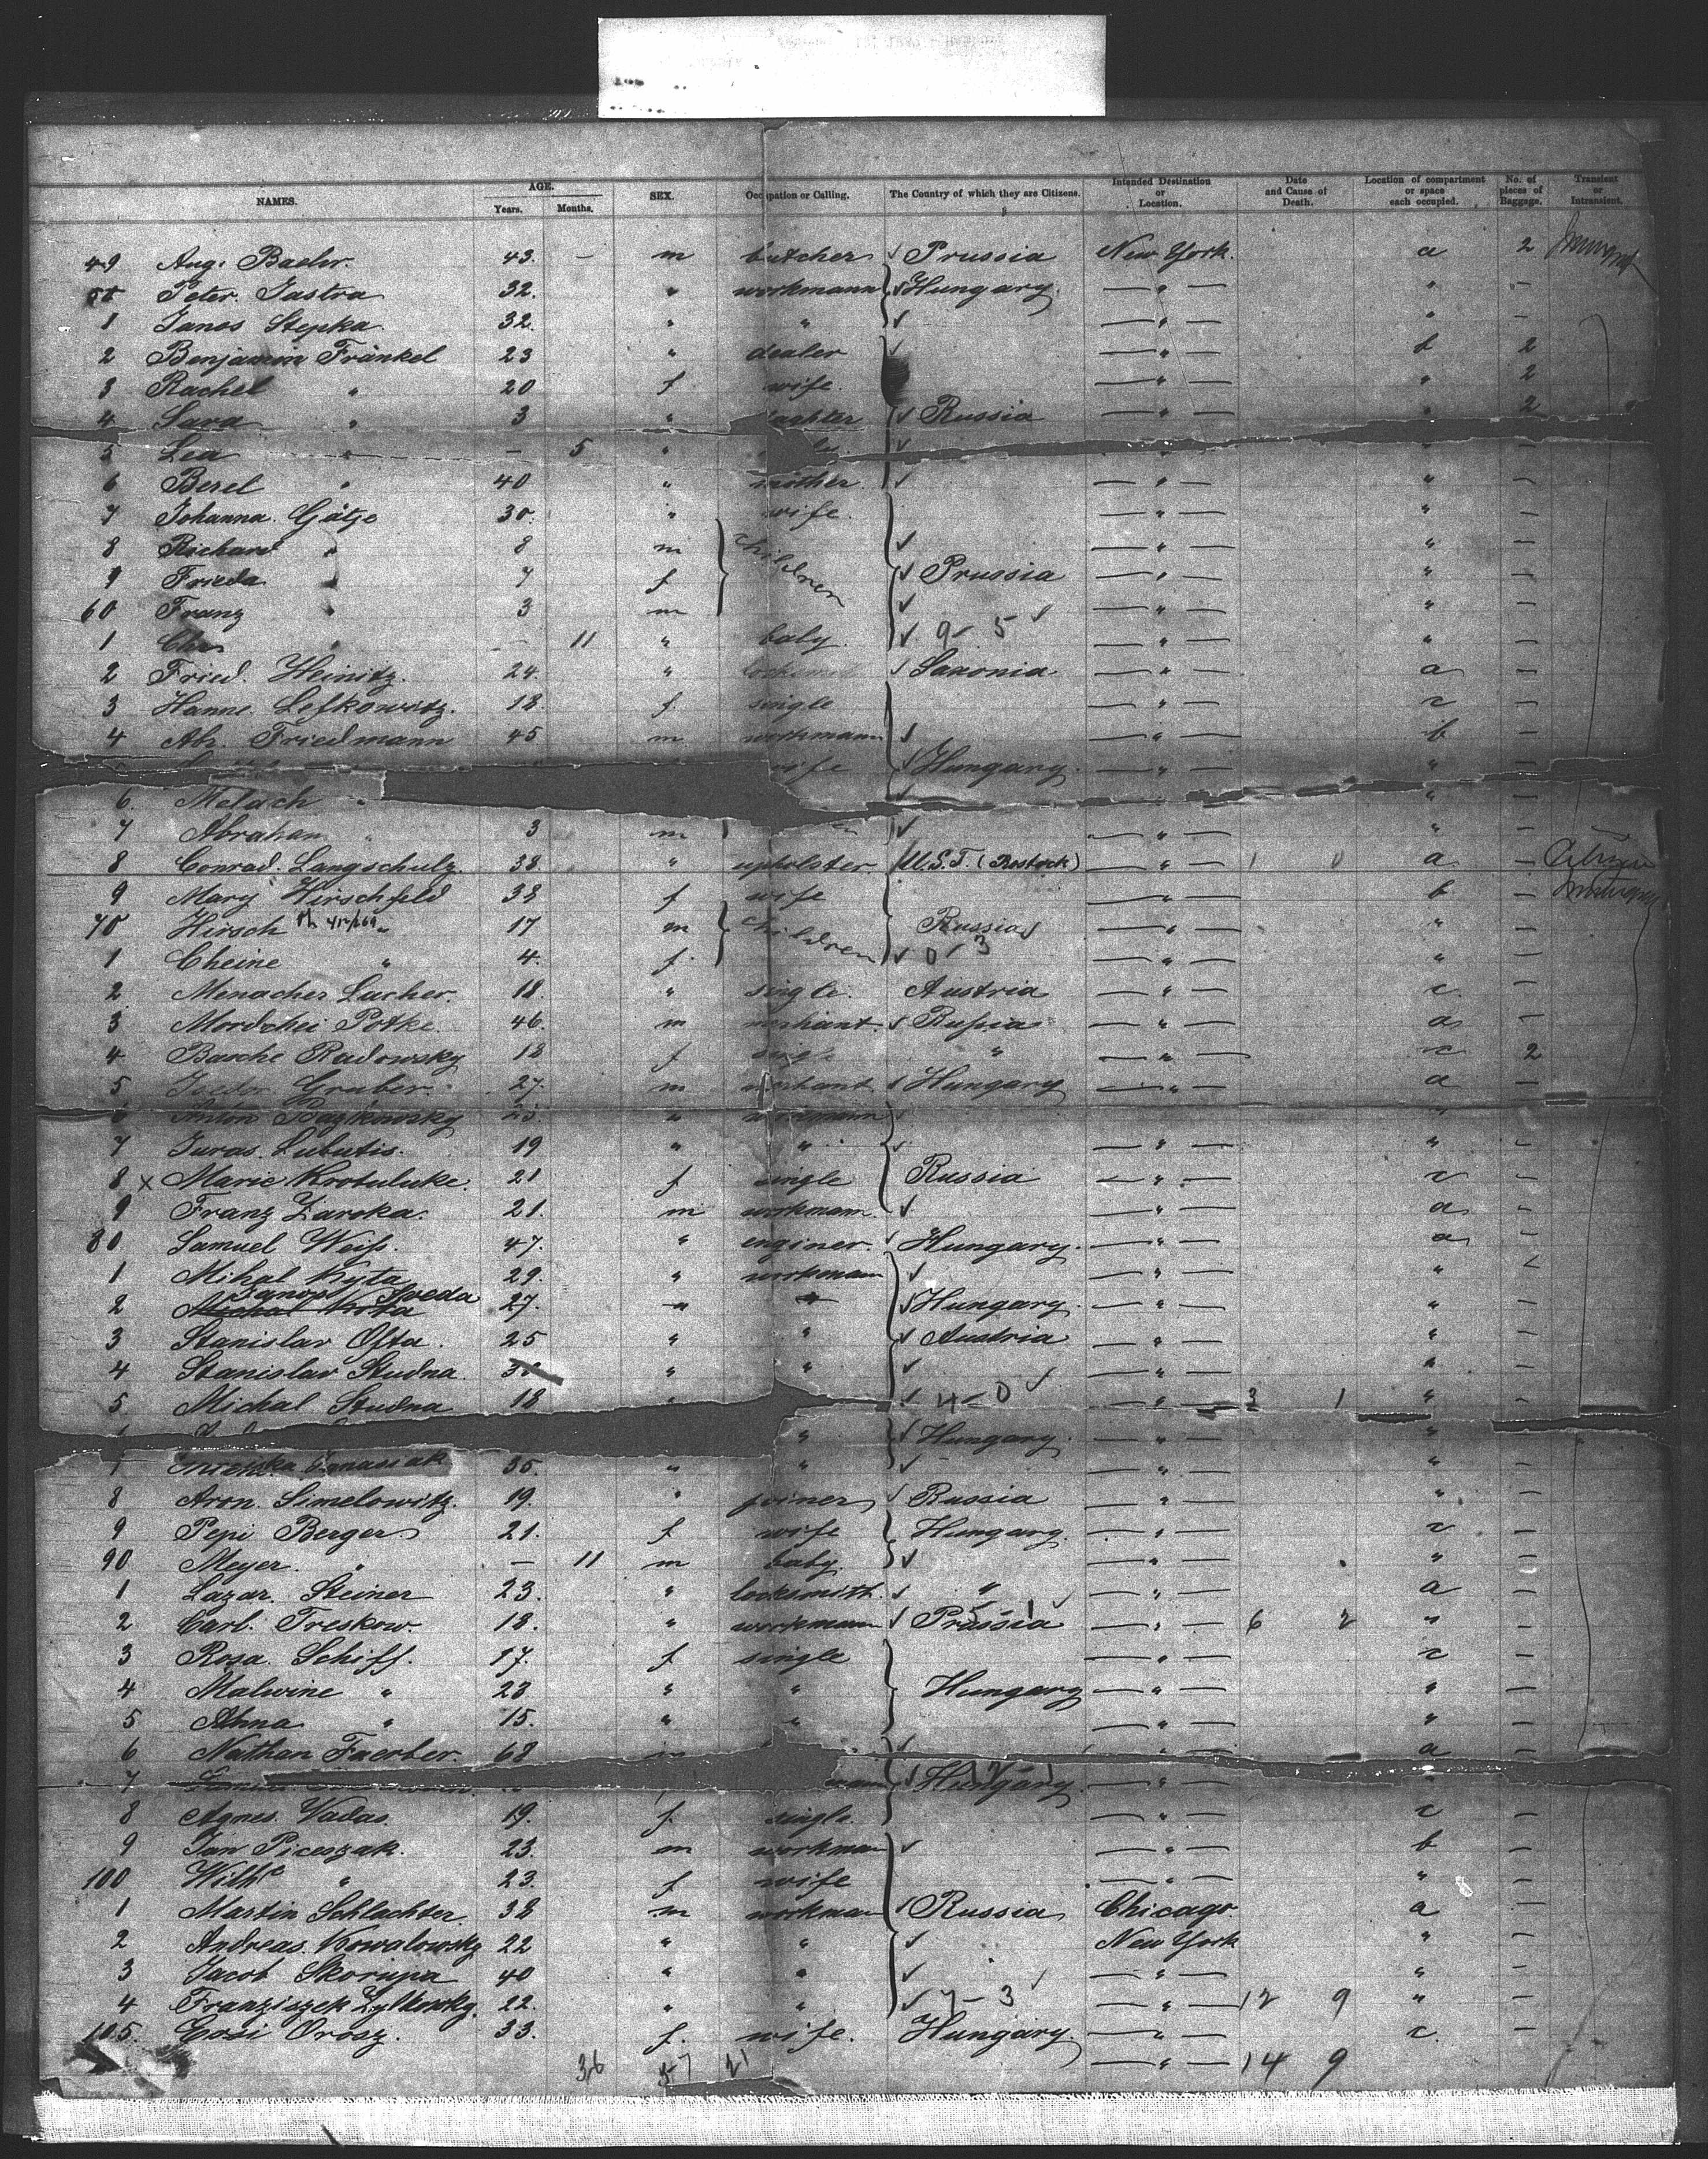 NAMES. AGE. Years. Months. SEX. Occupation or Calling. The Country of which they are Citizens. Intended Destination or Location. Date and Cause of Death. Location of compartment or space each occupied. No. of pieces of Baggage. Transient or Intransient.
49 Aug. Baehr. 43. — m butcher ✓ Prussia New York. a 2
Peter. Jastra 32. " workmann ✓ Hungary. — " — " —
1 Janos Stepka 32. " " ✓ — " — " —
2 Benjamin Fränkel 23 " dealer ✓ — " — b 2
3 Rachel " 20 f wife. — " — " 2
4 Sara " 3 " ✓ Russia — " — " 2
5 Lea " — 5 " ✓ " " —
6 Berel " 40 " mother. ✓ — " — " —
7 Johanna. Götze 30. " wife. — " — " —
8 Richard " 8 m children ✓ — " — " —
9 Frieda " 7 f ✓ Prussia — " — " —
60 Franz " 3 m ✓ — " — " —
1 " — 11 " baby. ✓ 9 - 5 ✓ — " — " —
2 Fried. Heinitz. 24. " ✓ Saxonia — " — a —
3 Hanne. Lefkowitz. 18. f single — " — c —
4 Abr. Friedmann 45 m workmann ✓ — " — b —
wife ✓ Hungary. — " — " —
6. Malach " ✓ " —
7 Abraham " 3 m ✓ — " — " —
8 Conrad. Langschulz. 38. " upholster. U.S.T. (Rostock) — " — 1 0 a —
9 Mary Hirschfeld 38 f wife — " — b —
70 Hirsch " 17 m children Russia ✓ — " — " —
1 Cheine " 4. f. ✓ 0 - 3 — " — " —
2. Menacher Lacher. 18. " single. Austria — " — c. —
3 Mordchei Potke. 46. m ✓ Russia — " — a —
4 Basche Radowsky 18 f single " — " — c 2
5 Isedor. Gruber. 27. m ✓ Hungary — " — a —
Anton ✓
7 Juras. Lubutis. 19 " " ✓ — " — " —
8 x Marie Krotuluke. 21 f single Russia — " — c —
9 Franz Zaroka. 21. m workmann. ✓ — " — a —
80 Samuel Weiss. 47. " enginer. ✓ Hungary. — " — a —
1 Mihal Kyta 29. " workmann ✓ — " — "
Janos Sveda
2 27. " " ✓ Hungary. — " — " —
3 Stanislav Olfta. 25 " " ✓ Austria — " — " —
4 Stanislav Studna. " " ✓ — " — " —
5 Michal Studna 18 " ✓ 4 - 0 ✓ — " — 3 1 " —
" ✓ Hungary. — " — "
Janasiak 35. " " ✓ — " — " —
8 Aron. Simelowitz. 19. " joiner ✓ Russia — " — " —
9 Pepi Berger 21. f wife Hungary. — " — c —
90 Meyer. " — 11 m baby. ✓ — " — " —
1 Lazar. Steiner 23. " locksmith. ✓ " — " — a —
2 Carl. Treskow. 18. " workmann ✓ Prussia 5 - 1 ✓ — " — 6 2 " —
3 Rosa. Schiff. 17. f single — " — c —
4 Malwine " 23 " " Hungary — " — " —
5 " 15. " " — " — " —
6 Nathan Faerber. 68 ✓ — " — a —
7 ✓ Hungary. — " —
8 Agnes. Vadas. 19. f single. — " — c —
9 Jan Piceszak. 23. m workman ✓ — " — b —
100 Wilhe " 23. f wife — " — " —
1 Martin Schlachter. 38 m workman ✓ Russia Chicago. a —
2 Andreas. Kowalowsky 22 " " ✓ New York " —
3 Jacob Skorupa 40 " " ✓ ✓ — " — " —
4 Franziszek Zylkowsky. 22. " " ✓ 7 - 3 — " — 12 9 " —
105. Orosz. 33. f. wife. Hungary. — " — c. —
36 57 21 — " — 14 9